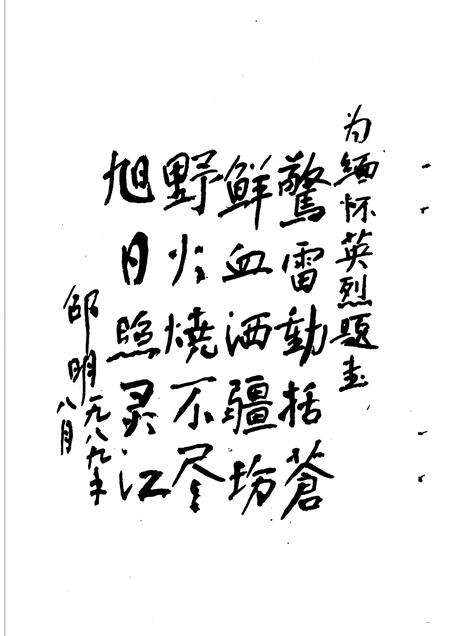 为缅怀英烈题书
驚雷動括蒼
鲜血洒疆场
野火燒不尽
旭日照灵江
邵明 一九八九年
八月